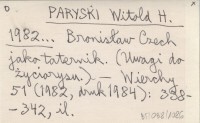 PARYSKI Witold H.
1982... Bronisław Czech
jako taternik. (Uwagi do
życiorysu.) — Wierchy
51 (1982, druk 1984): 338-
-342, il.